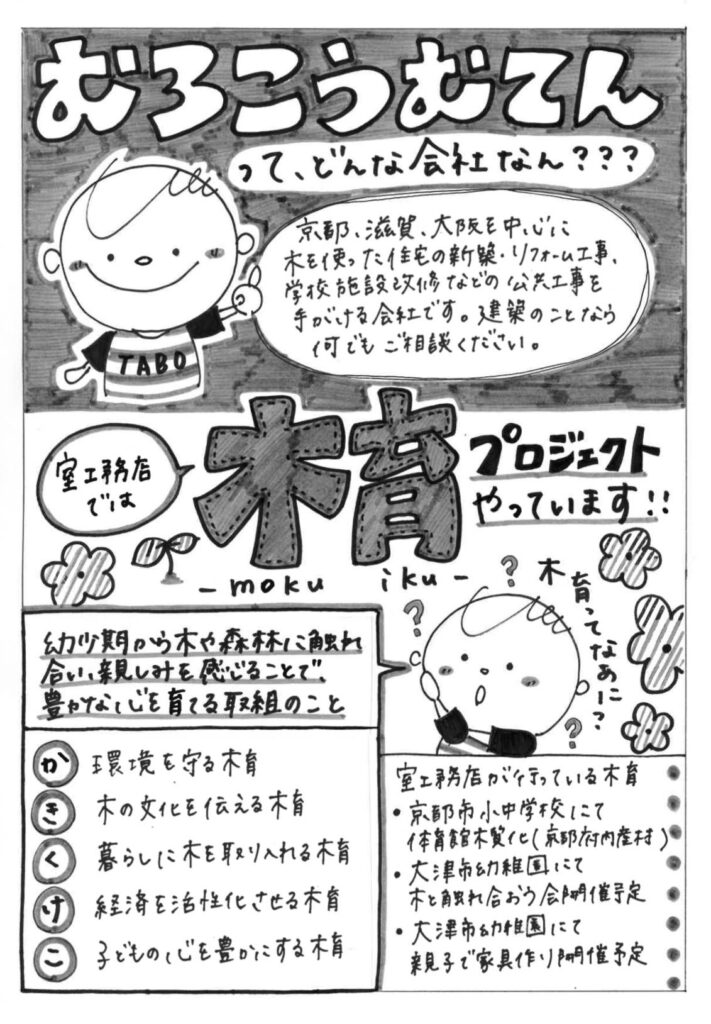 むろこうむてん
って、どんな会社なん???
京都、滋賀、大阪を中心に
木を使った住宅の新築・リフォーム工事、
学校施設改修などの公共工事を
手がける会社です。建築のことなら
何でもご相談ください。
TABO
室工務店
では
木育
プロジェクト
やっています!!
-moku iku-
木育ってなあに?
? ? ?
幼少期から木や森林に触れ
合い、親しみを感じることで、
豊かな心を育てる取組のこと
か 環境を守る木育
き 木の文化を伝える木育
く 暮らしに木を取り入れる木育
け 経済を活性化させる木育
こ 子どもの心を豊かにする木育
室工務店が行っている木育
・京都市小中学校にて
体育館木質化(京都府内産材)
・大津市幼稚園にて
木と触れ合おう会開催予定
・大津市幼稚園にて
親子で家具作り開催予定